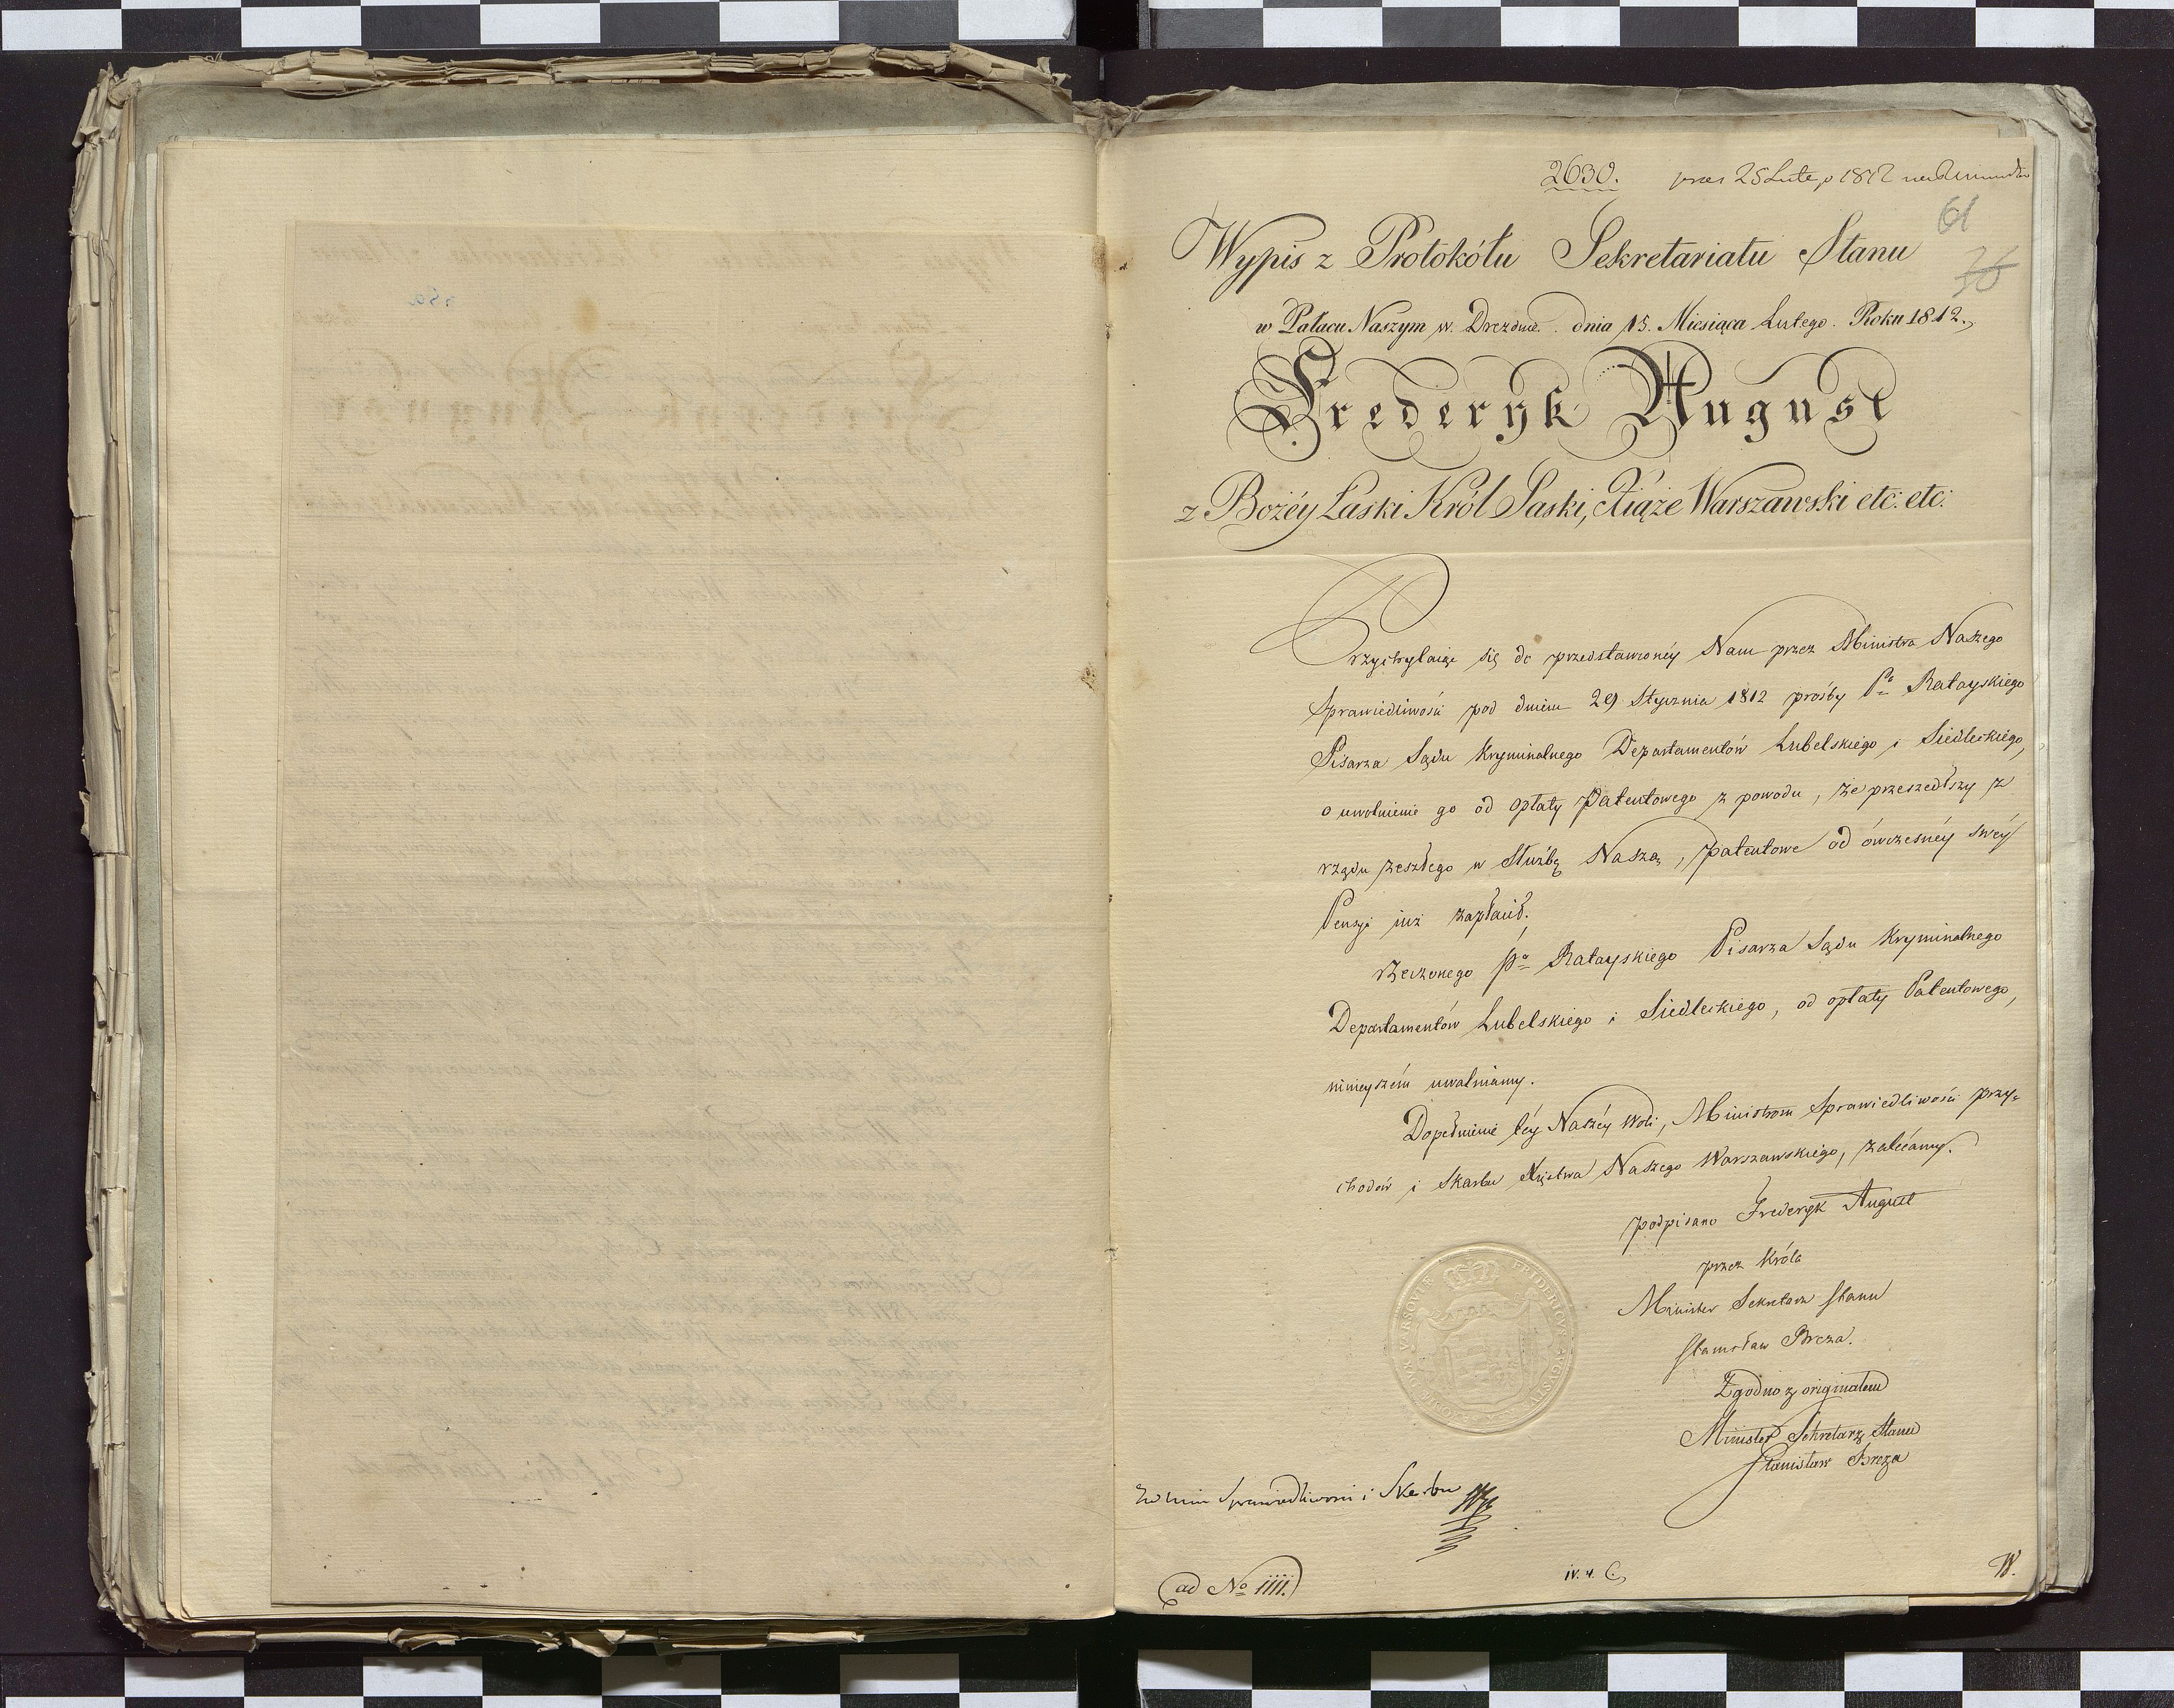 2630. 25 Lutego 1812
61
36
Wypis z Protokółu Sekretariatu Stanu
w Pałacu Naszym w. Dreznie. dnia 15. Miesiąca Lutego. Roku 1812.
Frederyk August
z Bożéy Łaski Król Saski, Xiąże Warszawski etc: etc:
Przychylaiąc się do przedstawionéy Nam przez Ministra Naszego
Sprawiedliwości pod dniem 29 Stycznia 1812 prośby Pa Ratayskiego
Pisarza Sądu Kryminalnego Departamentów Lubelskiego i Siedleckiego,
o uwolnienie go od opłaty Patentowego z powodu, że przeszedłszy z
rządu zeszłego w Służbę Naszą, patentowe od ówczesnéy swéy
Pensyi iuż zapłacił.
rzeczonego Pa Ratayskiego Pisarza Sądu Kryminalnego
Departamentów Lubelskiego i Siedleckiego, od opłaty Patentowego,
ninieyszém uwalniamy.
Dopełnienie téy Naszéy Woli, Ministrom Sprawiedliwości przy-
chodów i Skarbu Xięstwa Naszego Warszawskiego, zalécamy.
podpisano Frederyk August
przez Króla
Minister Sekretarz Stanu
Stanisław Breza.
Zgodno z originałem
Minister Sekretarz Stanu
Stanisław Breza
Sprawiedliwosci i Skarbu
ad No 1111.
IV. 4. C.
W.